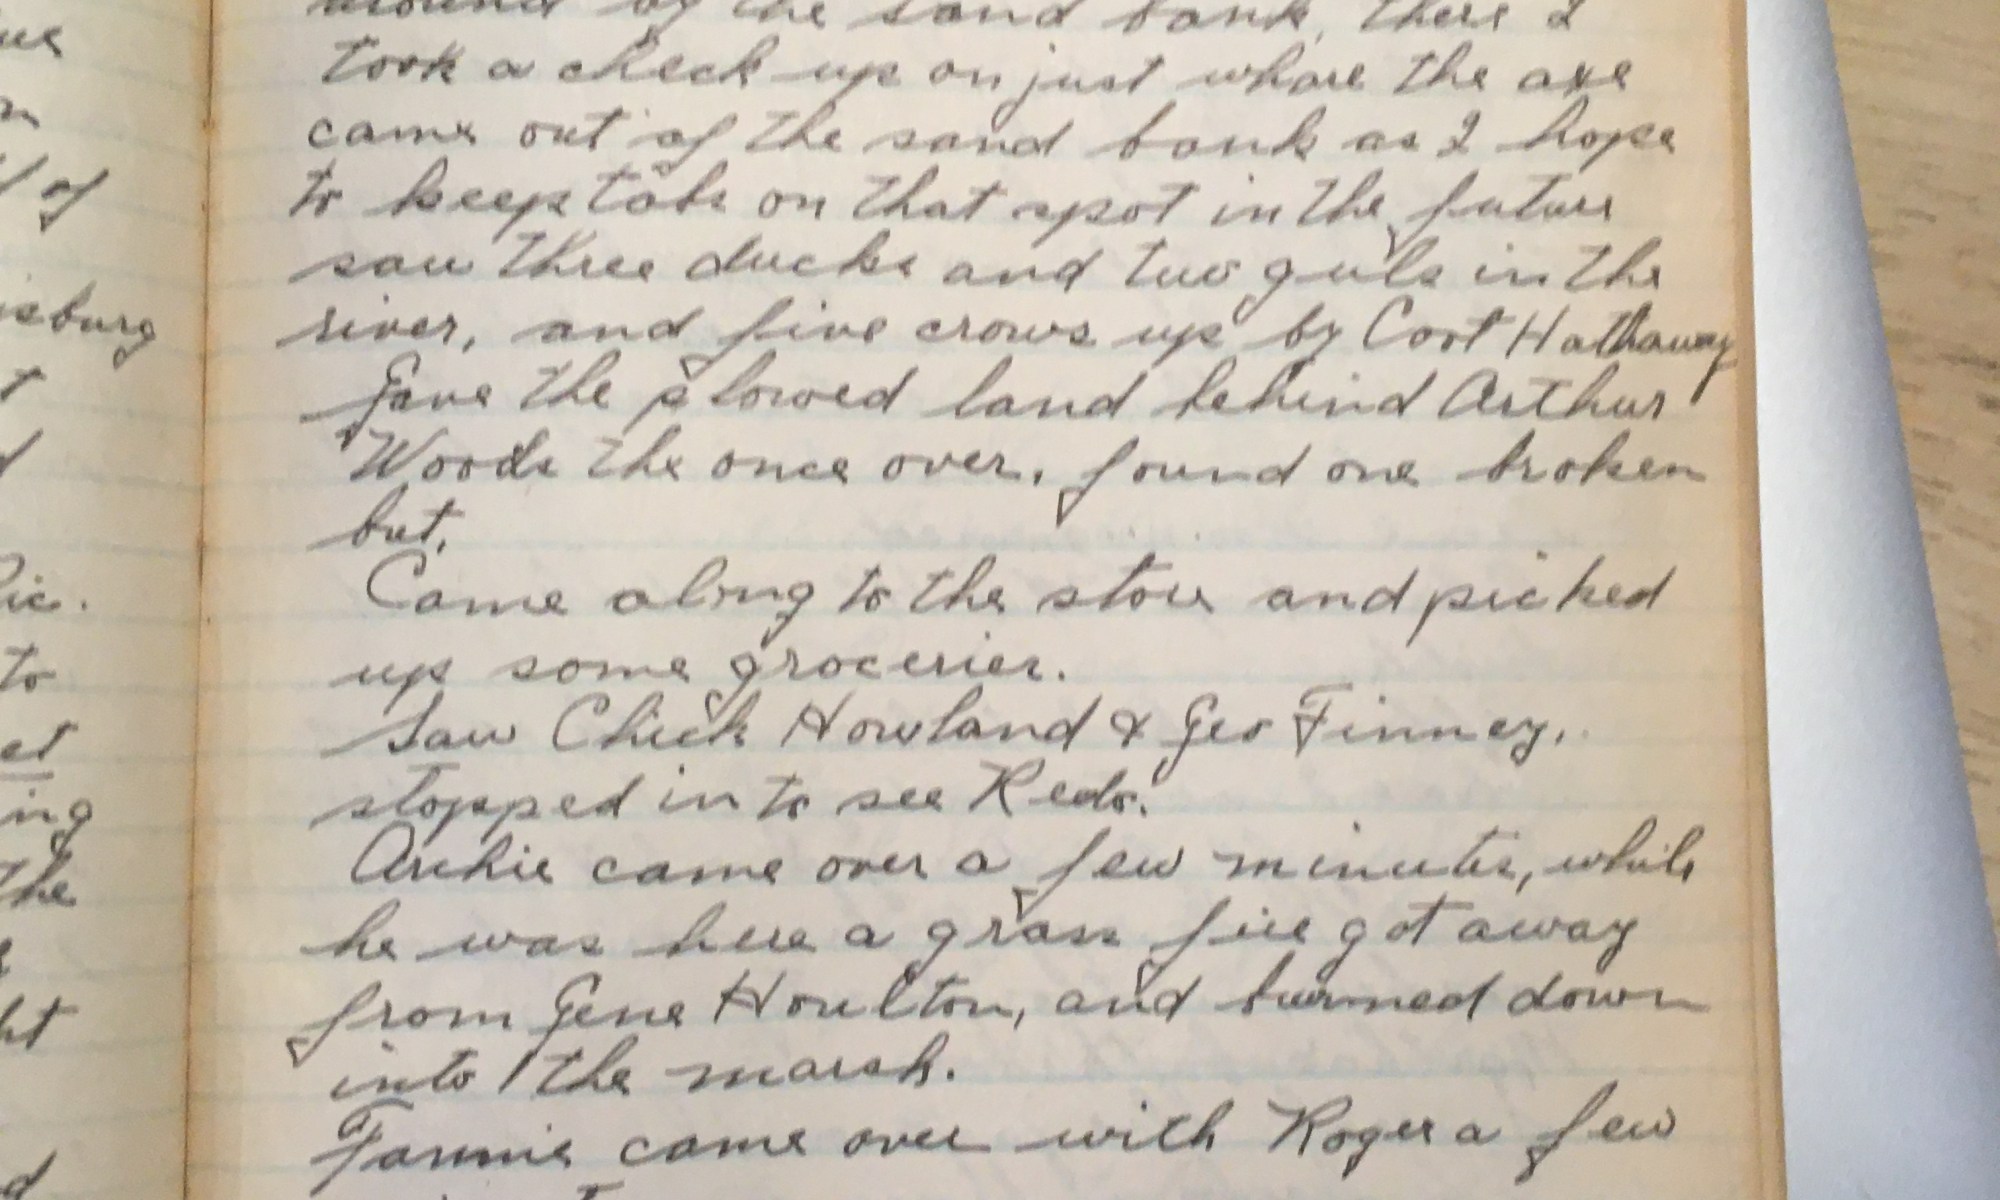 around by the sand bank, there I
took a check up on just whare the axe
came out of the sand bank as I hope
to keep tabs on that spot in the future
saw three ducks and two guls in the
river, and five crows up by Cort Hathaway
Gave the plowed land behind Arthur
Woods the once over, found one broken
but.
Came along to the store and picked
up some groceries.
Saw Chick Howland & Geo Finney.
stopped in to see Redo.
Archie came over a few minutes, while
he was here a grass fire got away
from Gene Houlton, and burned down
into the marsh.
Fannie came over with Roger a few